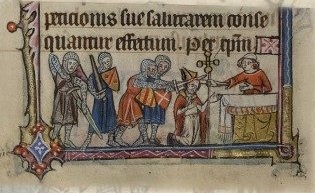 peticionis sue salutarem conse
quantur effectum. p̄ xp̄m